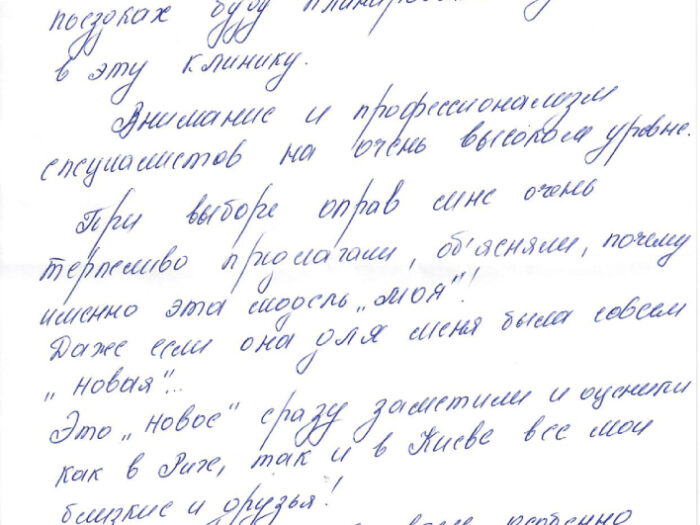 поездках буду планировать
в эту клинику.
Внимание и профессионализм
специалистов на очень высоком уровне.
При выборе оправ мне очень
терпеливо предлагали, об'ясняли, почему
именно эта модель „моя"!
Даже если она для меня была совсем
„новая"..
Это „новое" сразу заметили и оценили
как в Риге, так и в Киеве все мои
близкие и друзья!
особенно